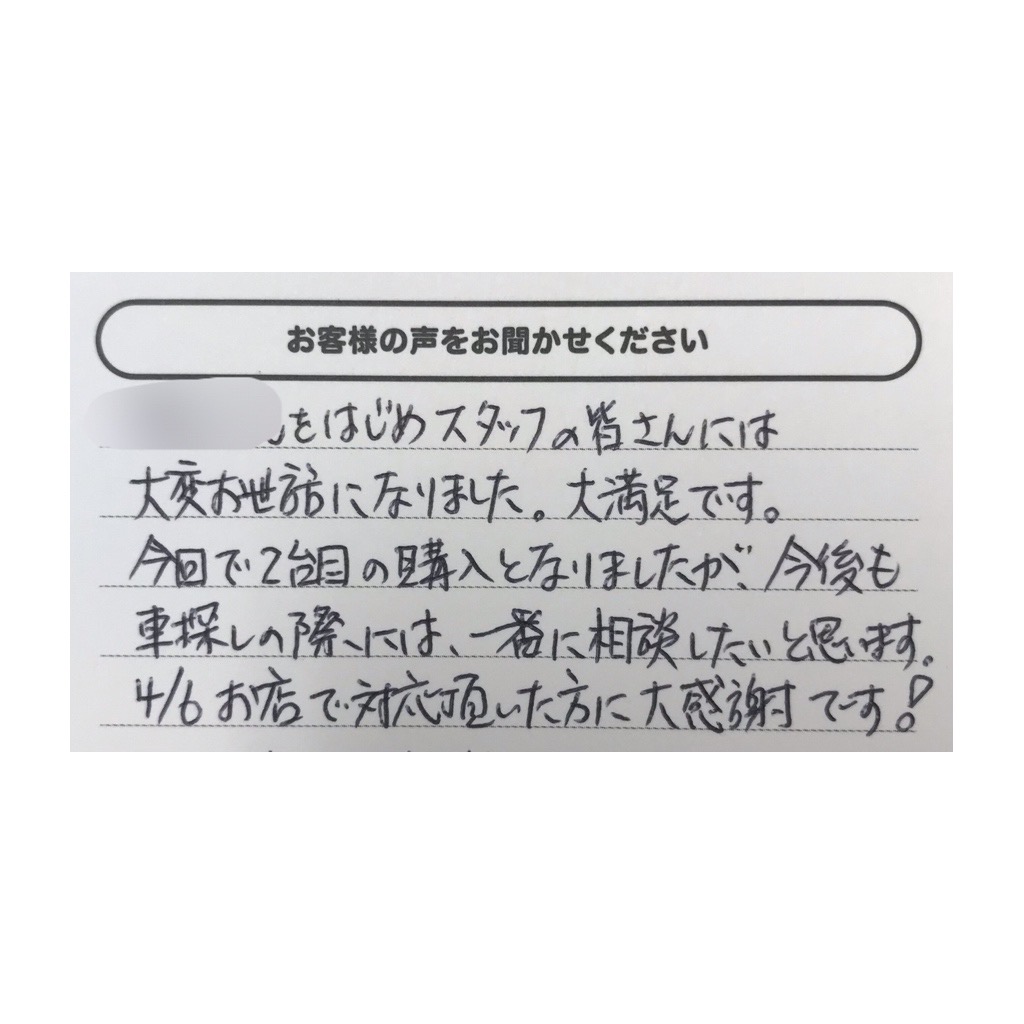 お客様の声をお聞かせください
をはじめスタッフの皆さんには
大変お世話になりました。大満足です。
今回で2台目の購入となりましたが、今後も
車探しの際には、一番に相談したいと思います。
4/6 お店で対応頂いた方に大感謝です!